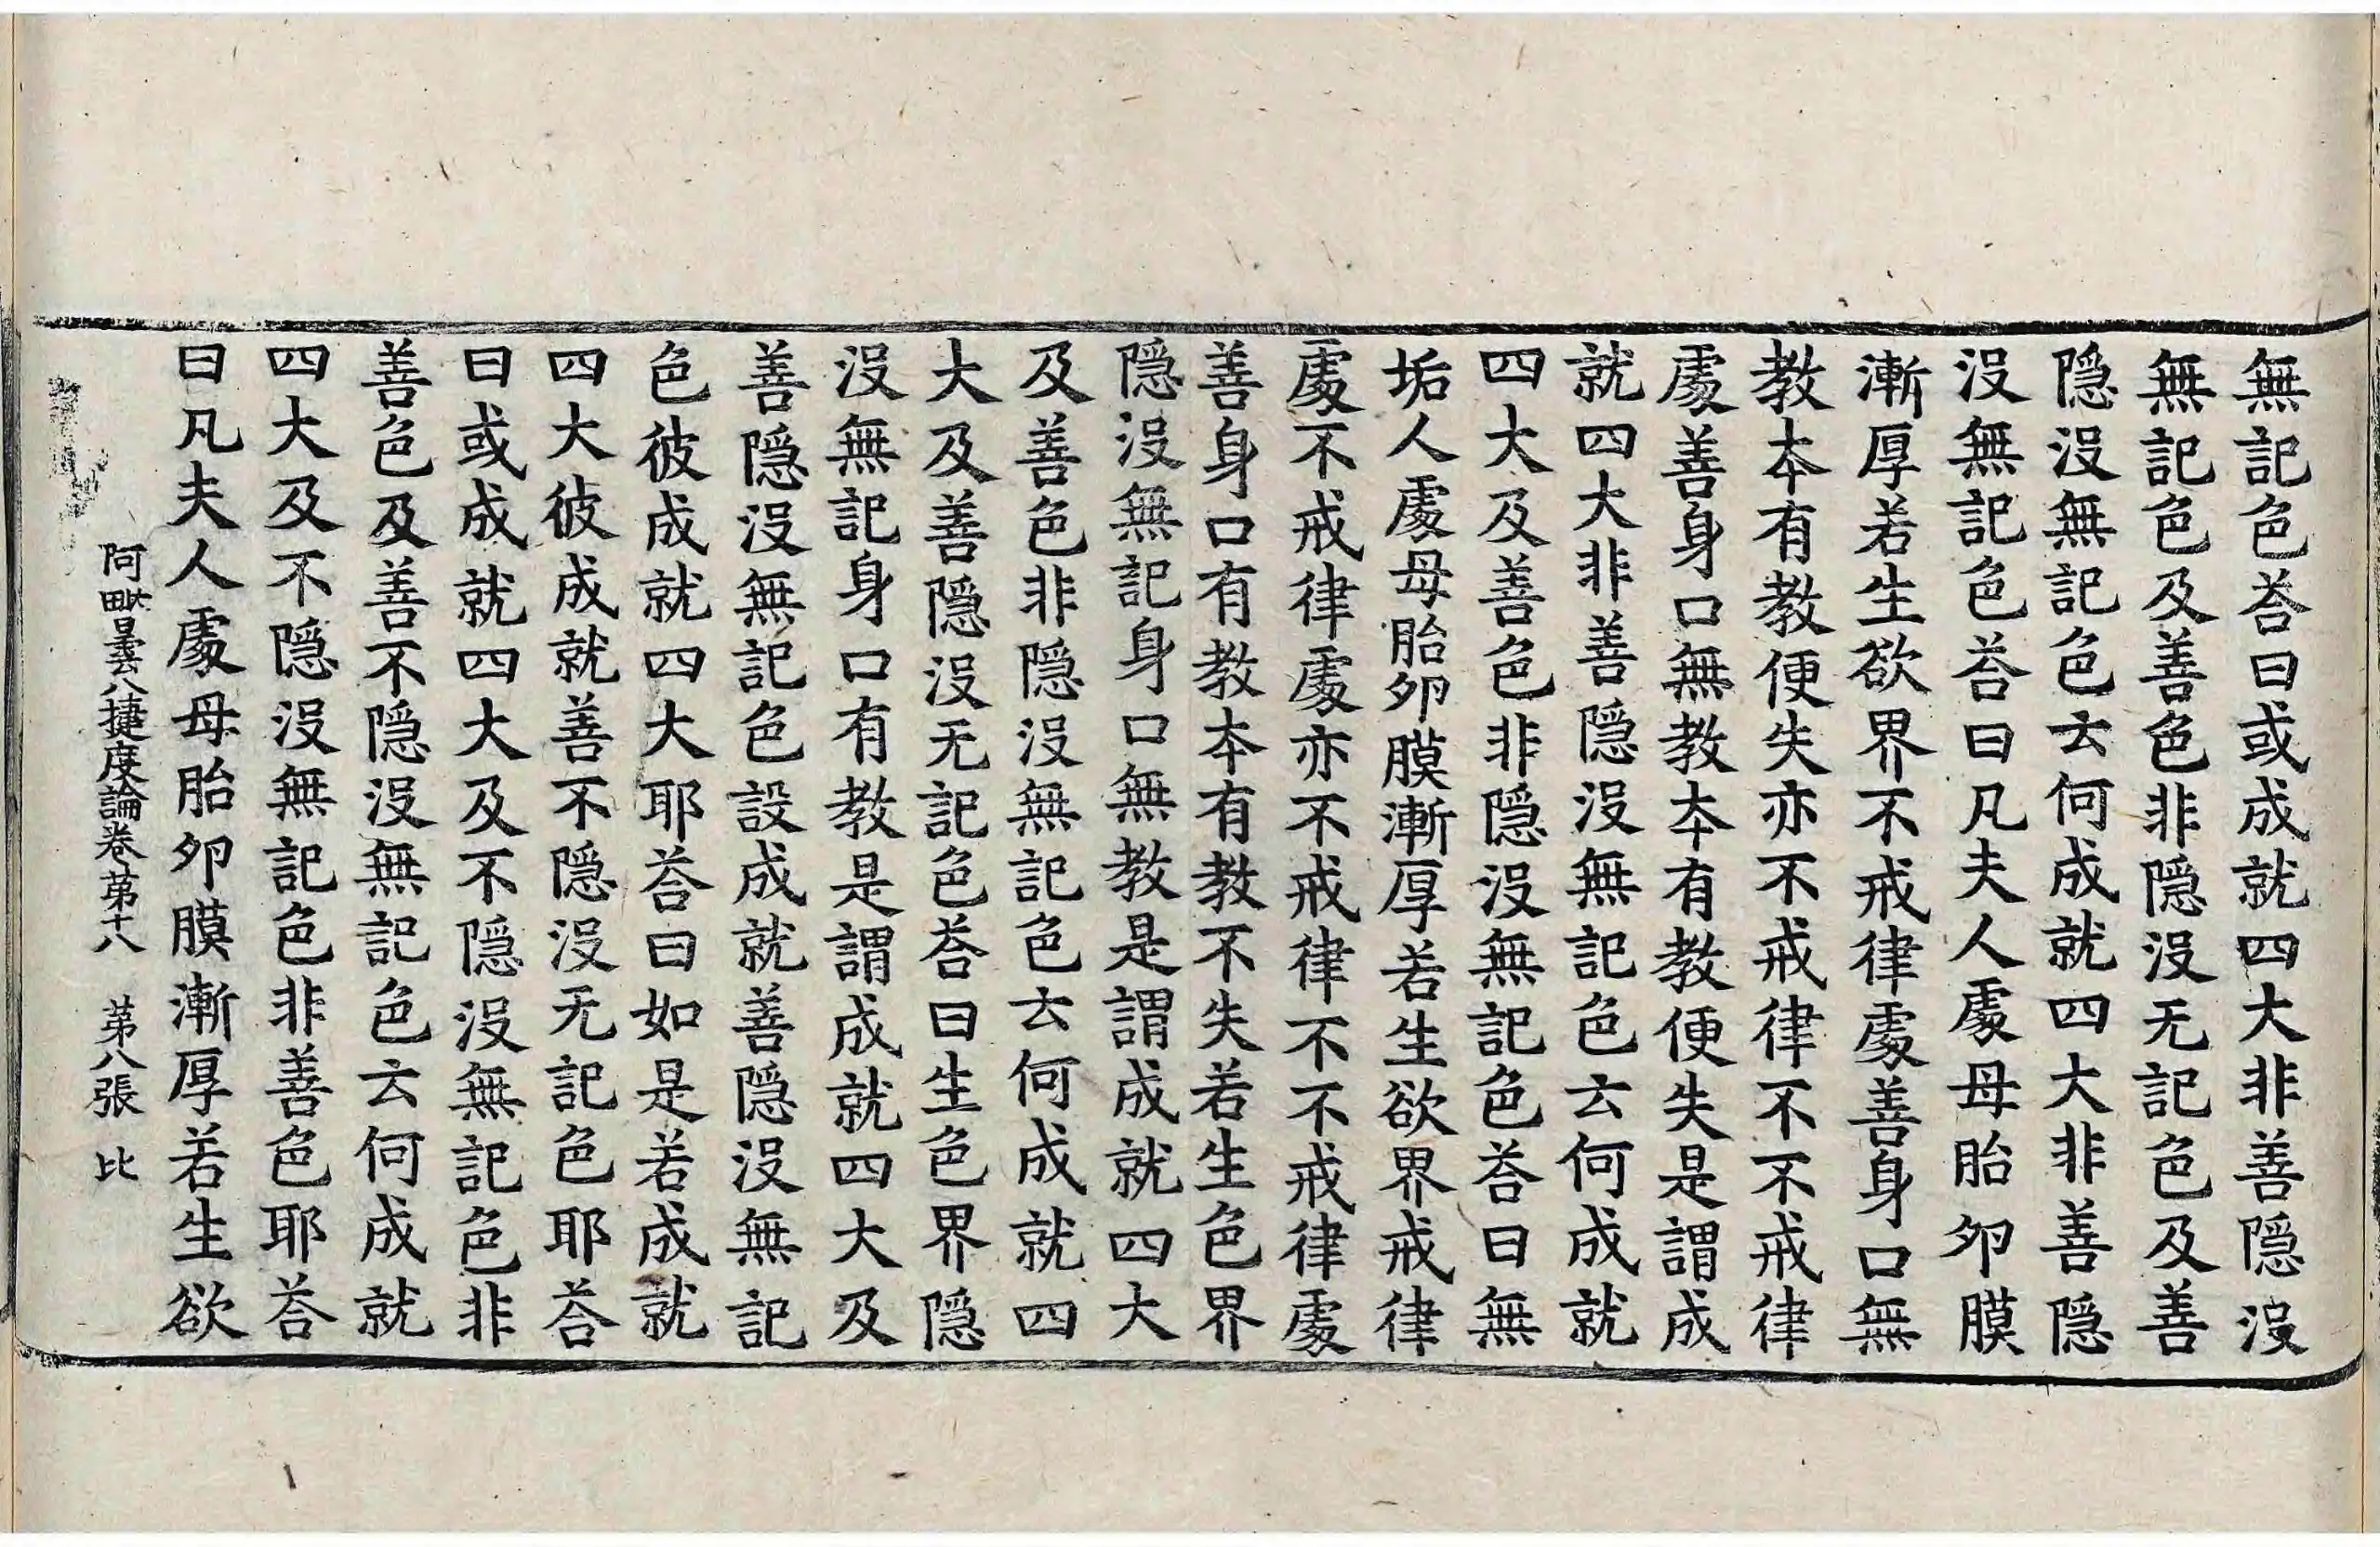 無記色荅曰或成就四大非善隱没
無記色及善色非隱没无記色及善
隱没無記色云何成就四大非善隱
没無記色荅曰凡夫人處母胎夘膜
漸厚若生欲界不戒律處善身口無
教本有教便失亦不戒律不不戒律
處善身口無教本有教便失是謂成
就四大非善隱没無記色云何成就
四大及善色非隱没無記色荅曰無
垢人處母胎夘膜漸厚若生欲界戒律
處不戒律處亦不戒律不不戒律處
善身口有教本有教不失若生色界
隱没無記身口無教是謂成就四大
及善色非隱没無記色云何成就四
大及善隱没无記色荅曰生色界隱
没無記身口有教是謂成就四大及
善隱没無記色設成就善隱没無記
色彼成就四大耶荅曰如是若成就
四大彼成就善不隱没无記色耶荅
曰或成就四大及不隱没無記色非
善色及善不隱没無記色云何成就
四大及不隱没無記色非善色耶荅
曰凡夫人處母胎夘膜漸厚若生欲
阿毗曇八揵度論卷第十八 第八張 比